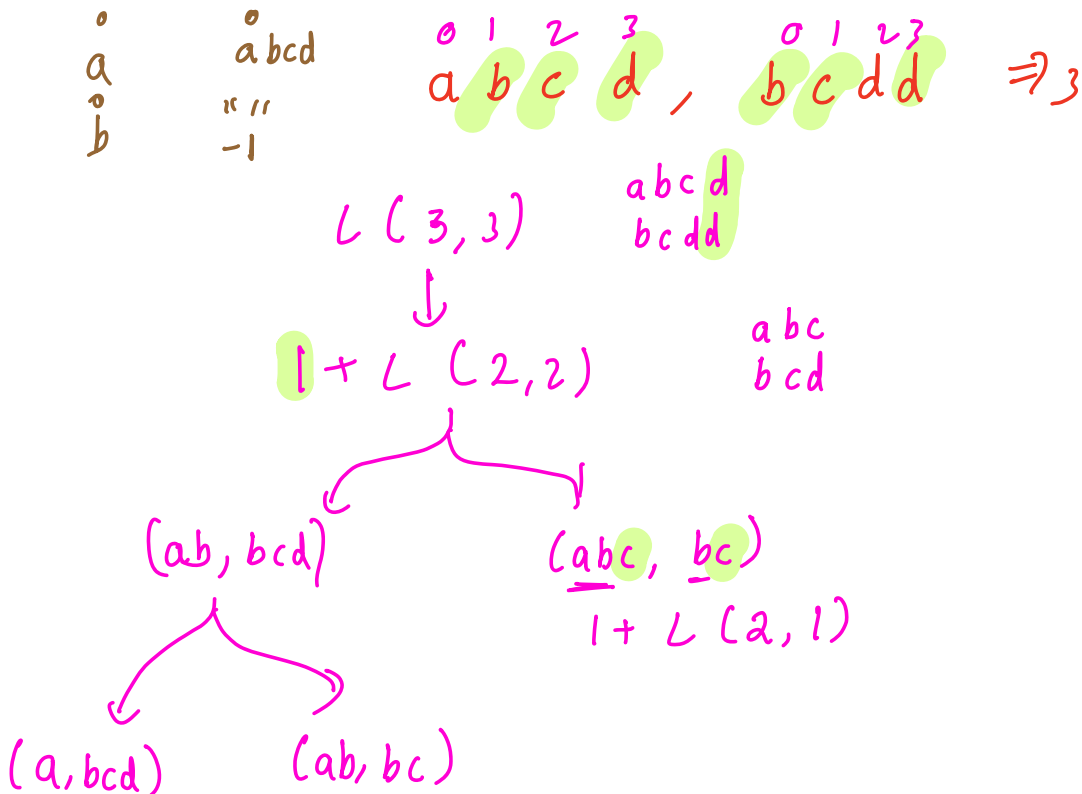 0 0
a abcd
0 " "
b -1
0 1 2 3 0 1 2 3
a b c d , b c d d ⇒ 3
L (3,3)
a b c d
b c d d
1 + L (2,2)
a b c
b c d
(ab, bcd) (abc, bc)
1 + L (2,1)
(a, bcd) (ab, bc)